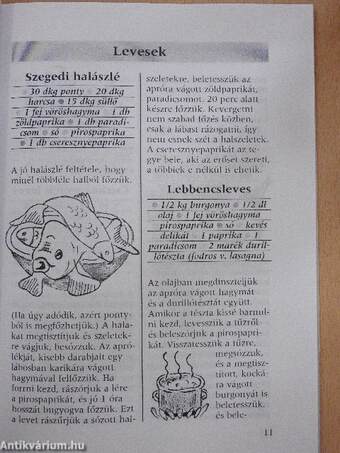 Levesek
Szegedi halászlé
30 dkg ponty • 20 dkg
harcsa • 15 dkg süllő
• 1 fej vöröshagyma • 1 db
zöldpaprika • 1 db paradi-
csom • só • pirospaprika
• 1 db cseresznyepaprika
A jó halászlé feltétele, hogy
minél többféle halból főzzük.
(Ha úgy adódik, azért ponty-
ból is megfőzhetjük.) A hala-
kat megtisztítjuk és szeletek-
re vágjuk, besózzuk. Az apró-
lékját, kisebb darabjait egy
lábosban karikára vágott
hagymával felfőzzük. Ha
forrni kezd, rászórjuk a lére
a pirospaprikát, és jó 1 óra
hosszát bugyogva főzzük. Ezt
a levet rászűrjük a sózott hal-
szeletekre, beletesszük az
apróra vágott zöldpaprikát,
paradicsomot. 20 perc alatt
készre főzzük. Kevergetni
nem szabad főzés közben,
csak a lábast rázogatni, így
nem esnek szét a halszeletek.
A cseresznyepaprikát az te-
gye bele, aki az erőset szereti,
a többiek e nélkül is ehetik.
Lebbencsleves
• 1/2 kg burgonya • 1/2 dl
olaj • 1 fej vöröshagyma
pirospaprika • só • kevés
delikát • 1 paprika • 1
paradicsom 2 marék duril-
lótészta (fodros v. lasagna)
Az olajban megdinszteljük
az apróra vágott hagymát
és a durillótésztát együtt.
Amikor a tészta kissé barnul-
ni kezd, levesszük a tűzről
és beleszórjuk a pirospapri-
kát. Visszatesszük a tűzre,
megsózzuk,
és a megtisz-
tított, kocká-
ra vágott
burgonyát is
beletesszük,
és bele-
11
Antikvárium.hu